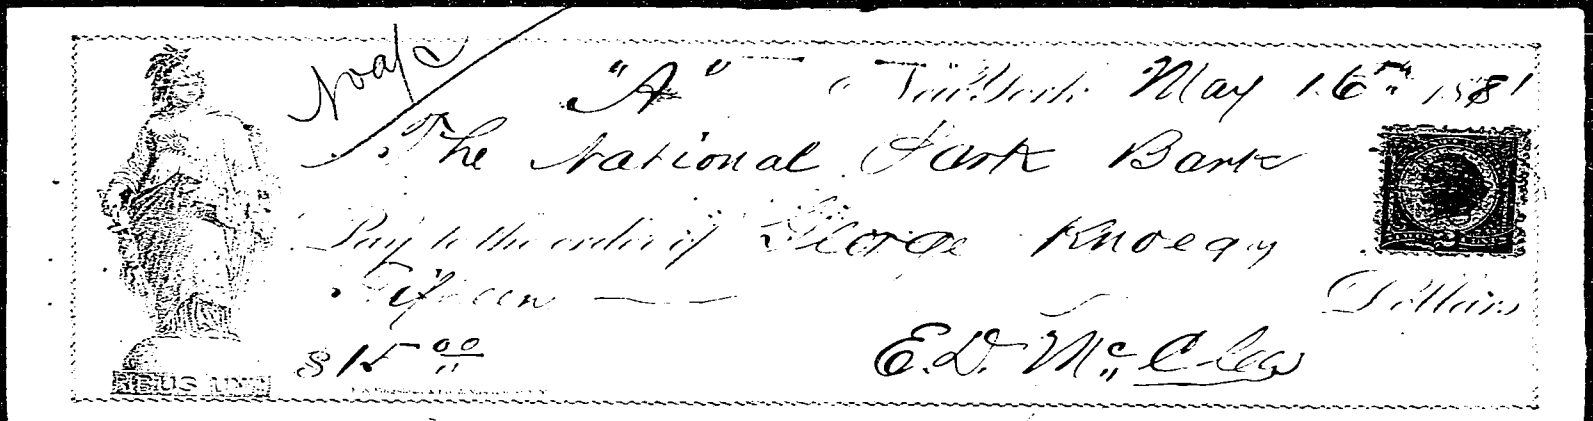 No a/c
"A" New York May 16th 1881
The National Park Bank
Pay to the order of George
Fifteen Dollars
$15 00 E.D. Mc